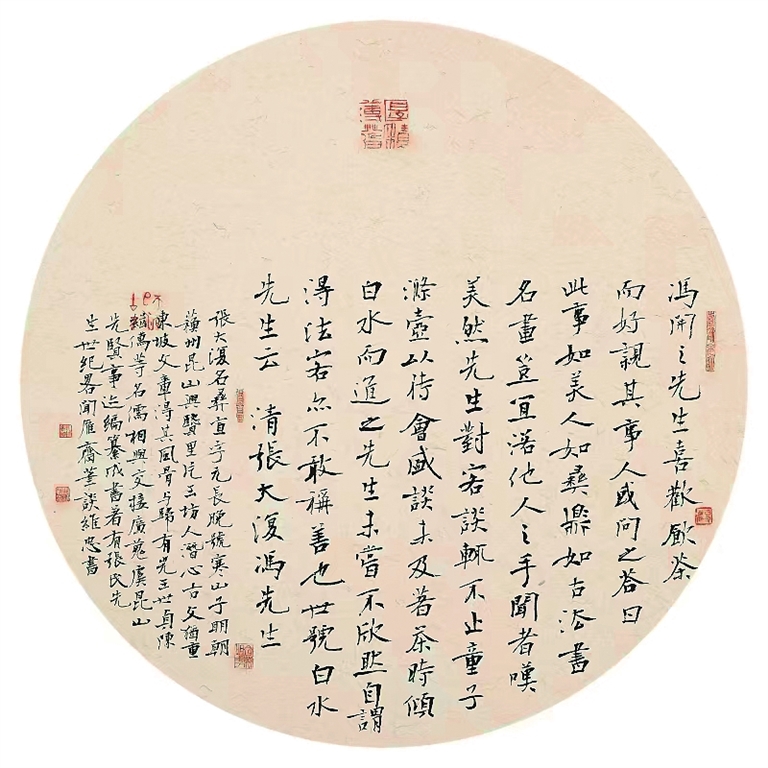 馮開之先生喜歡飲茶
而好親其事人或問之答曰
此事如美人如彝鼎如古法書
名畫豈宜落他人之手聞者嘆
美然先生對客談輒不止童子
滌壺以待會盛談未及著茶時傾
白水而進之先生未嘗不欣然自謂
得法客亦不敢稱善也世號白水
先生云 清張大復馮先生
張大復名彝宣字元長晚號寒山子明朝
蘇州昆山興賢里片玉坊人潛心古文猶重
東坡文章得其風骨与歸有光王世貞陳
繼儒等名儒相與交接廣蒐虞昆山
先賢事迹編纂成書著有張氏先
生世紀畧聞雁齋筆談維忠書